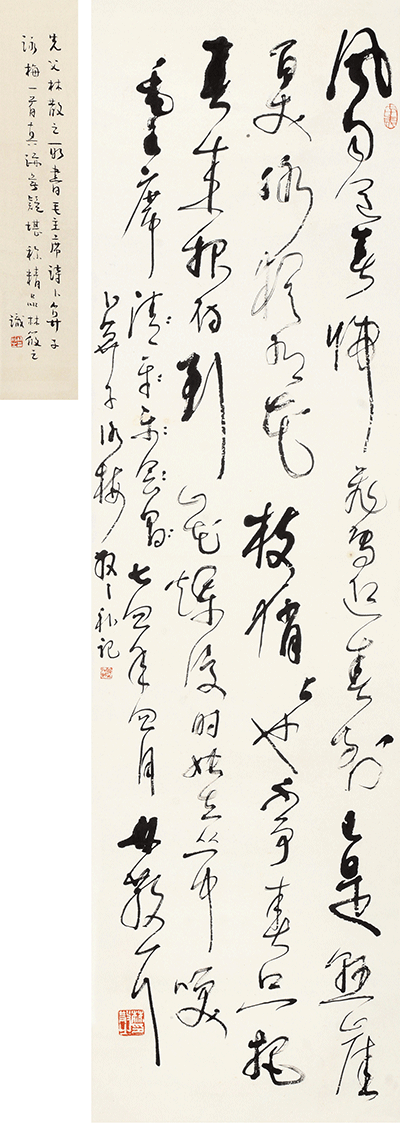 風雨送春歸飛雪迎春到已是懸崖
百丈冰猶有花枝俏〻也不爭春只把
春來報待到山花爛漫時她在叢中笑
毛主席清平樂會昌七四年四月林散耳
卜算子詠梅散之補記
先父林散之所書毛主席詩卜算子
詠梅一首真跡無疑堪称精品林筱之
識